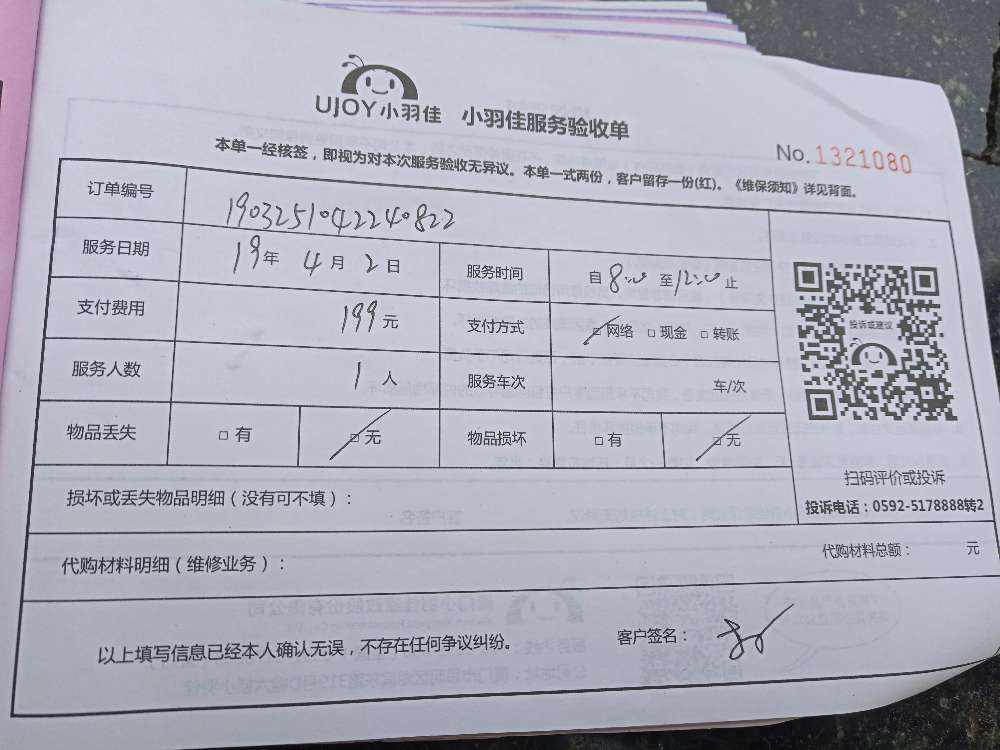 UJOY小羽佳 小羽佳服务验收单
No.1321080
本单一经核签，即视为对本次服务验收无异议。本单一式两份，客户留存一份(红)。《维保须知》详见背面。
订单编号 1903251042240822
服务日期 19年 4月 2日 服务时间 自 8:00 至 12:00 止
支付费用 199元 支付方式 □网络 □现金 □转账
服务人数 1人 服务车次 车/次
物品丢失 □有 □无 物品损坏 □有 □无
投诉或建议
扫码评价或投诉
投诉电话：0592-5178888转2
损坏或丢失物品明细（没有可不填）：
代购材料明细（维修业务）： 代购材料总额： 元
以上填写信息已经本人确认无误，不存在任何争议纠纷。 客户签名：